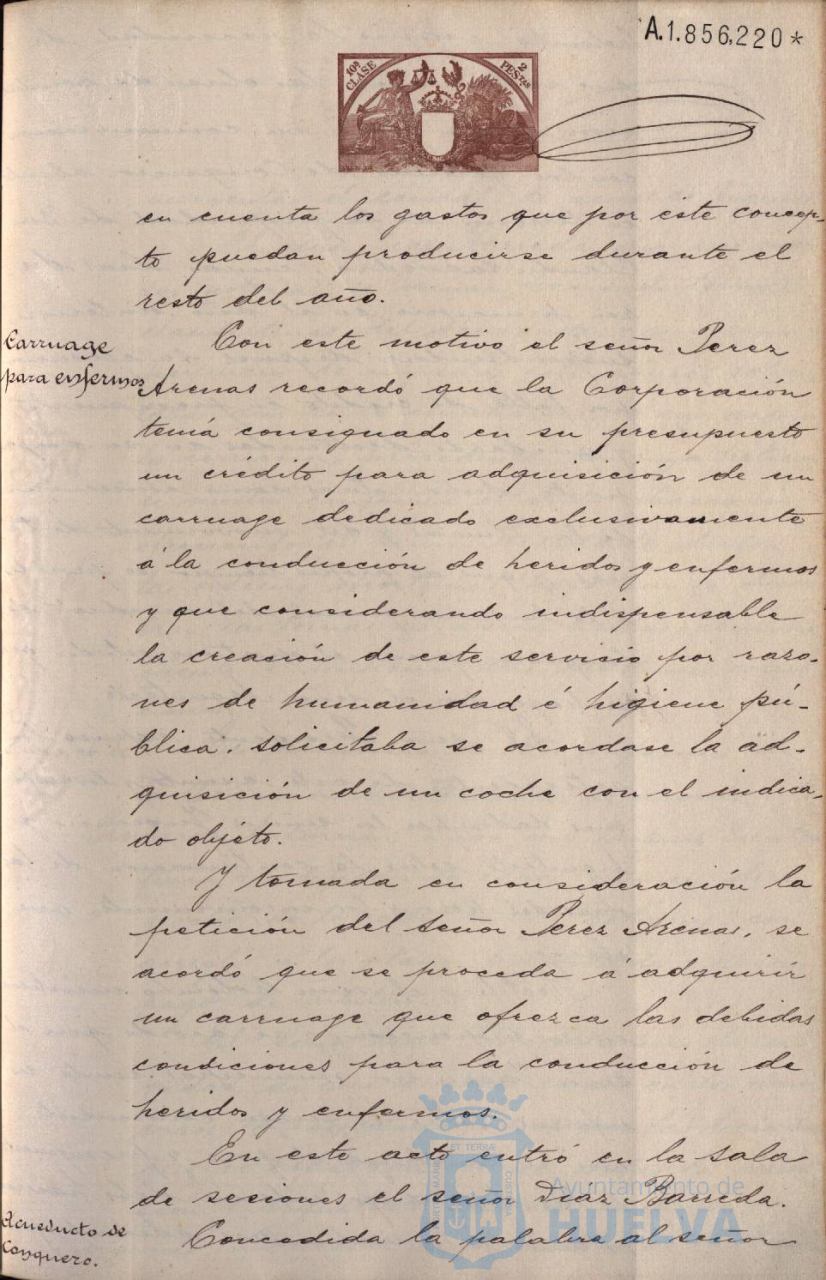 A.1.856,220*
10ª CLASE
2 PESTAS
en cuenta los gastos que por este concep-
to puedan producirse durante el
resto del año.
Carruage
para enfermos
Con este motivo el señor Perez
Arenas recordó que la Corporación
tenia consignado en su presupuesto
un crédito para adquisición de un
carruage dedicado exclusivamente
á la conducción de heridos y enfermos
y que considerando indispensable
la creación de este servicio por razo-
nes de humanidad é higiene pú-
blica, solicitaba se acordase la ad-
quisición de un coche con el indica-
do objéto.
Y tomada en consideración la
petición del señor Perez Arenas, se
acordó que se proceda á adquirir
un carruage que ofrezca las debidas
condiciones para la conducción de
heridos y enfermos.
En este acto entró en la sala
de sesiones el señor Diáz Barreda.
Acueducto de
Conquero.
Concedida la palabra al señor
Ayuntamiento de
HUELVA